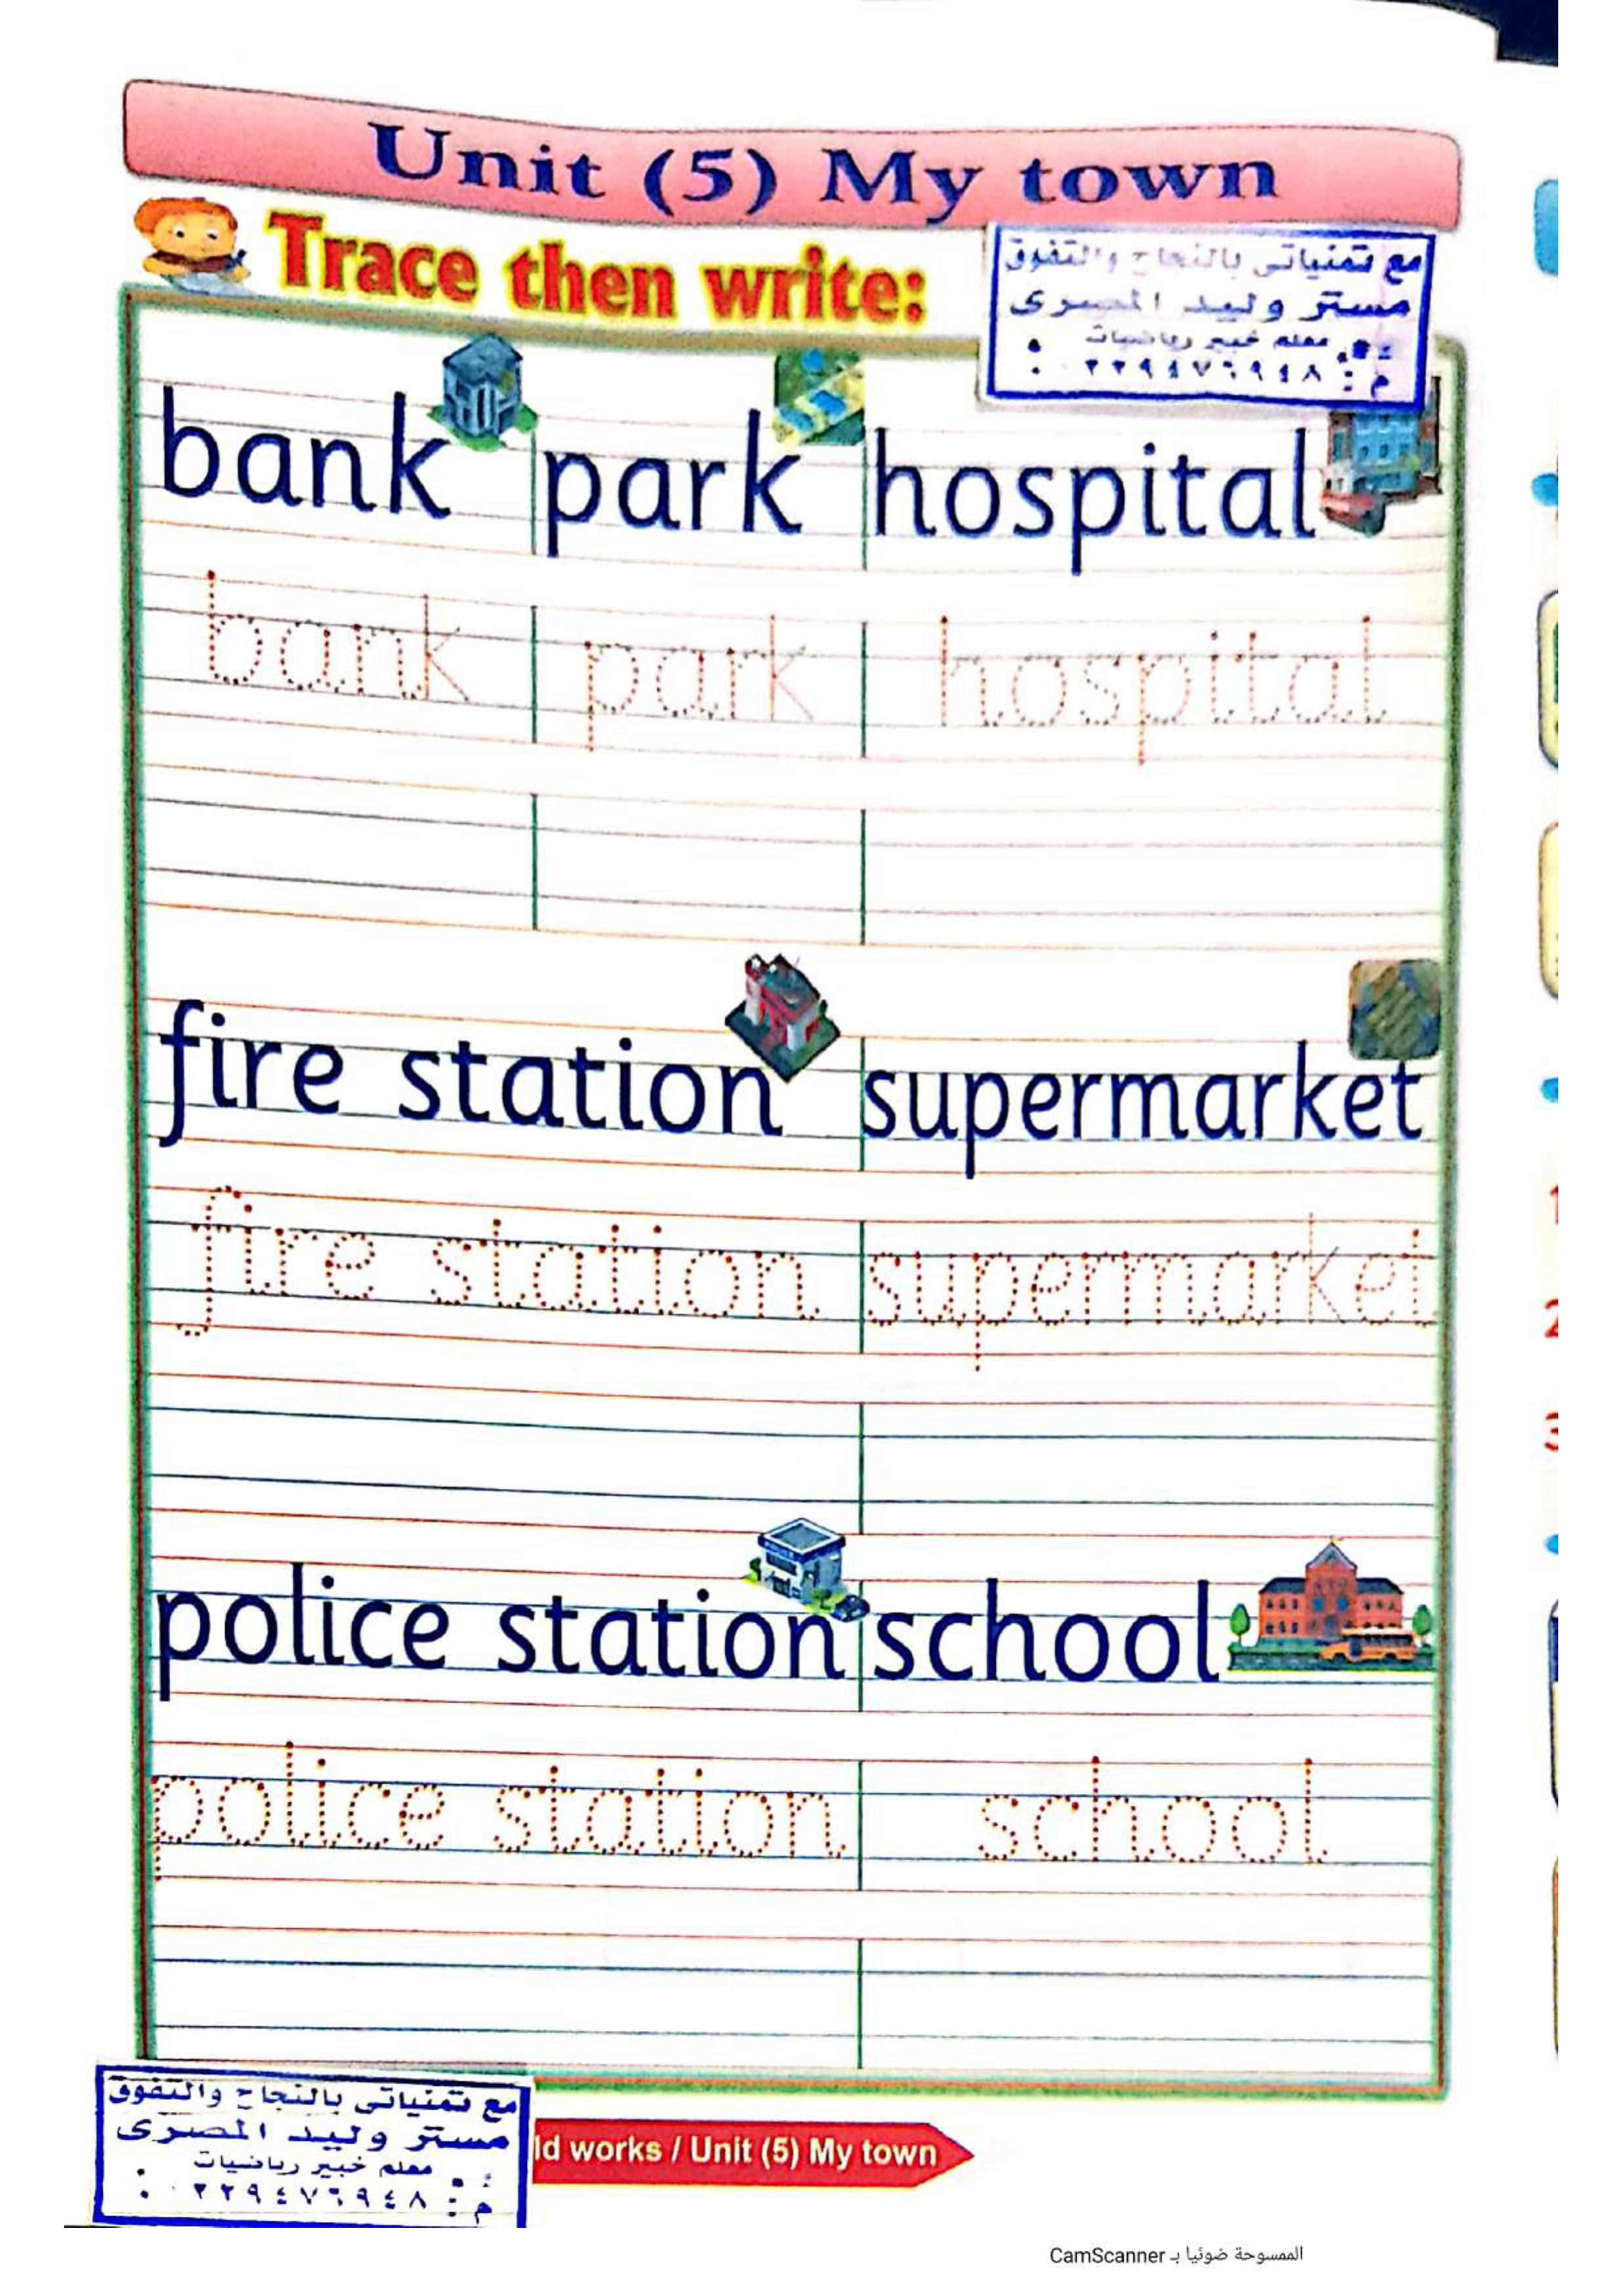 Unit (5) My town
Trace then write:
مع تمنياتى بالنجاح والتفوق
مستر وليد المصرى
معلم خبير رياضيات
م :
bank park hospital
bank park hospital
fire station supermarket
fire station supermarket
police station school
police station school
مع تمنياتى بالنجاح والتفوق
مستر وليد المصرى
معلم خبير رياضيات
م :
ld works / Unit (5) My town
1
2
3
الممسوحة ضوئيا بـ CamScanner